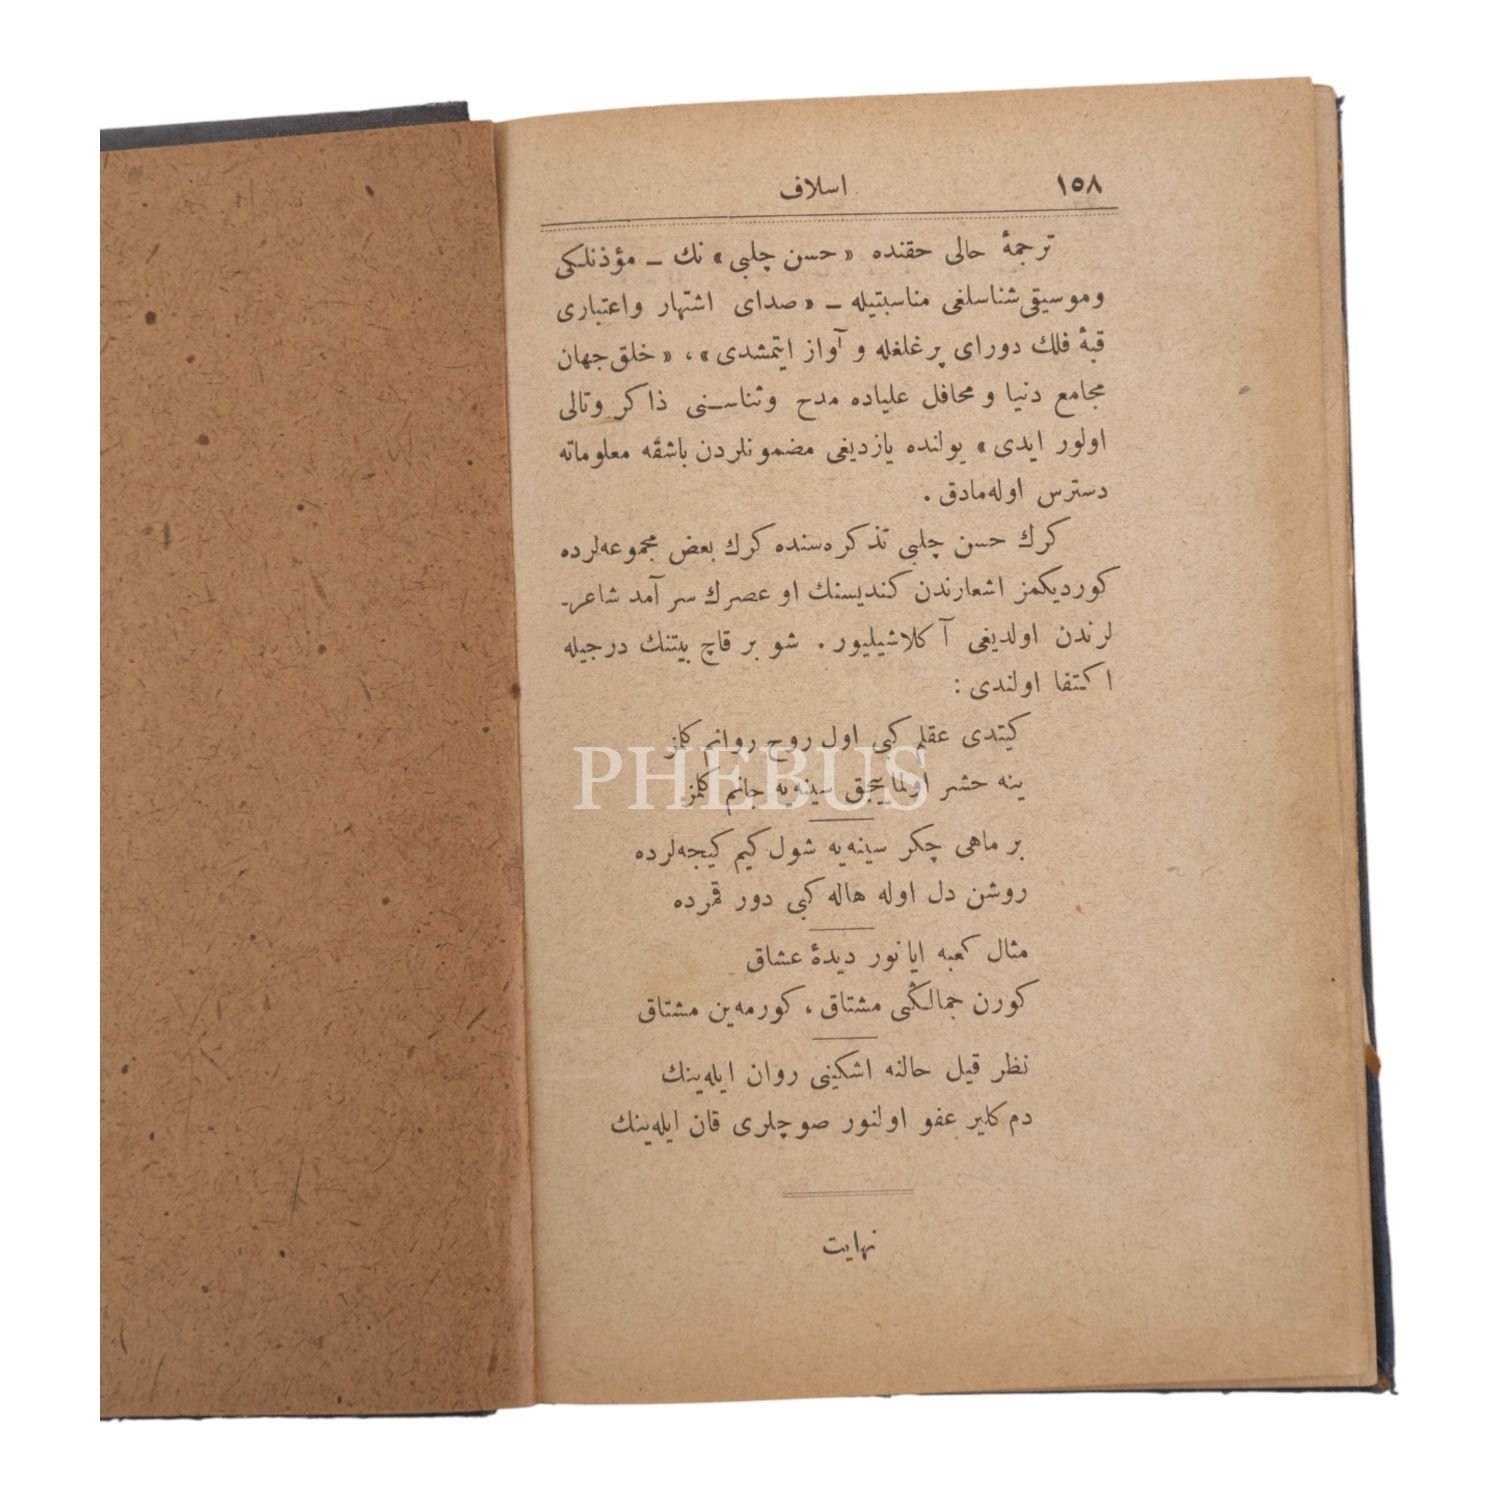 ١٥٨
اسلاف
ترجمۀ حالى حقنده «حسن چلبى» نك ـ مؤذنلكى
وموسيقى‌شناسلغى مناسبتيله ـ «صداى اشتهار واعتبارى
قبۀ فلك دوراى پر غلغله و آواز ايتمشدى»، «خلق جهان
مجامع دنيا و محافل علياده مدح وثناسـنى ذاكر وتالى
اولور ايدى» يولنده يازديغى مضمونلردن باشقه معلوماته
دسترس اوله‌مادق .
كرك حسن چلبى تذكره‌سنده كرك بعض مجموعه‌لرده
كورديكمز اشعارندن كنديسنك او عصرك سر آمد شاعر-
لرندن اولديغى آكلاشيليور . شو بر قاچ بيتنك درجيله
اكتفا اولندى :
كيتدى عقلم كبى اول روح روانم كلمز
ينه حشر اولماييجق سينه‌يه جانم كلمز
PHEBUS
بر ماهى چكر سينه‌يه شول كيم كيجه‌لرده
روشن دل اوله هاله كبى دور قمرده
مثال كعبه ايا نور ديدۀ عشاق
كورن جمالـڭى مشتاق ، كورمه‌ين مشتاق
نظر قيل حالنه اشكينى روان ايله‌ينك
دم كلير عفو اولنور صوچلرى قان ايله‌ينك
نهايت